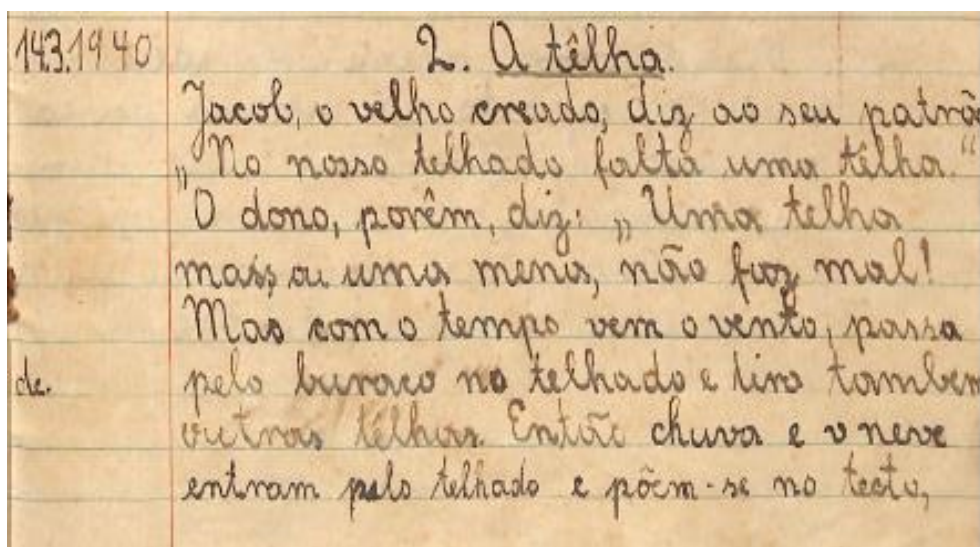 14.3.1940 2. A têlha.
Jacob, o velho creado, diz ao seu patrão
„No nosso telhado falta uma têlha.“
O dono, porêm, diz: „Uma telha
mais, ou uma menos, não faz mal!
Mas com o tempo vem o vento, passa
de. pelo buraco no telhado e tira tambem
outras têlhas. Então chuva e o neve
entram pelo telhado e põem-se no tecto,